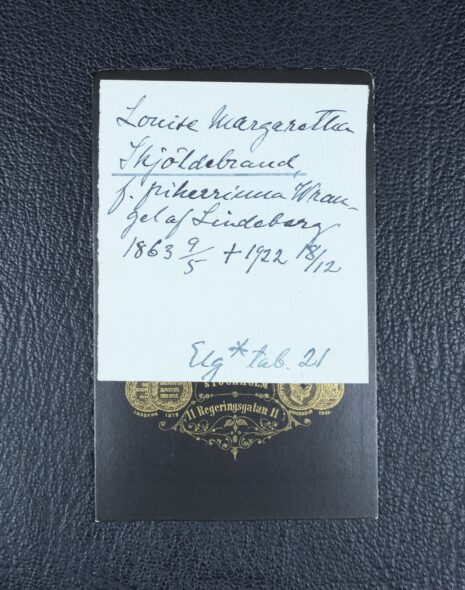 Louise Margaretha
Skjöldebrand,
f. friherrinna Wran-
gel af Lindeberg
1863 9/5 + 1922 18/12
Elg* tab. 21
STOCKHOLM
11 Regeringsgatan 11
STOCKHOLM